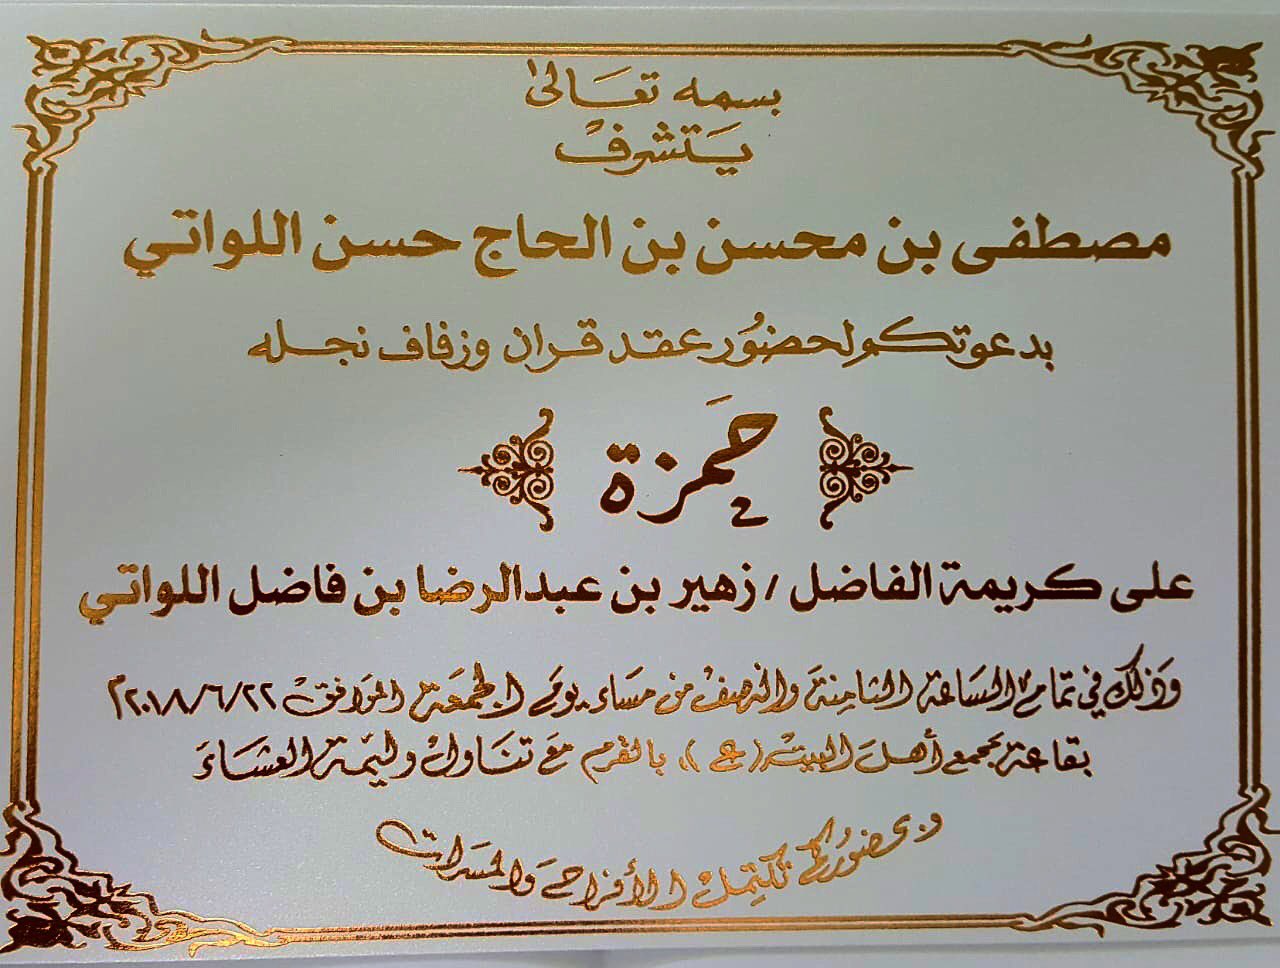 بسمه تعالى
يتشرف
مصطفى بن محسن بن الحاج حسن اللواتي
بدعوتكم لحضور عقد قران وزفاف نجله
حمزة
على كريمة الفاضل / زهير بن عبدالرضا بن فاضل اللواتي
وذلك في تمام الساعة الثامنة والنصف من مساء يوم الجمعة الموافق ٢٠١٨/٦/٢٢م
بقاعة مجمع أهل البيت (ع) ، بالقرم مع تناول وليمة العشاء
وبحضوركم تكتمل الأفراح والمسرات